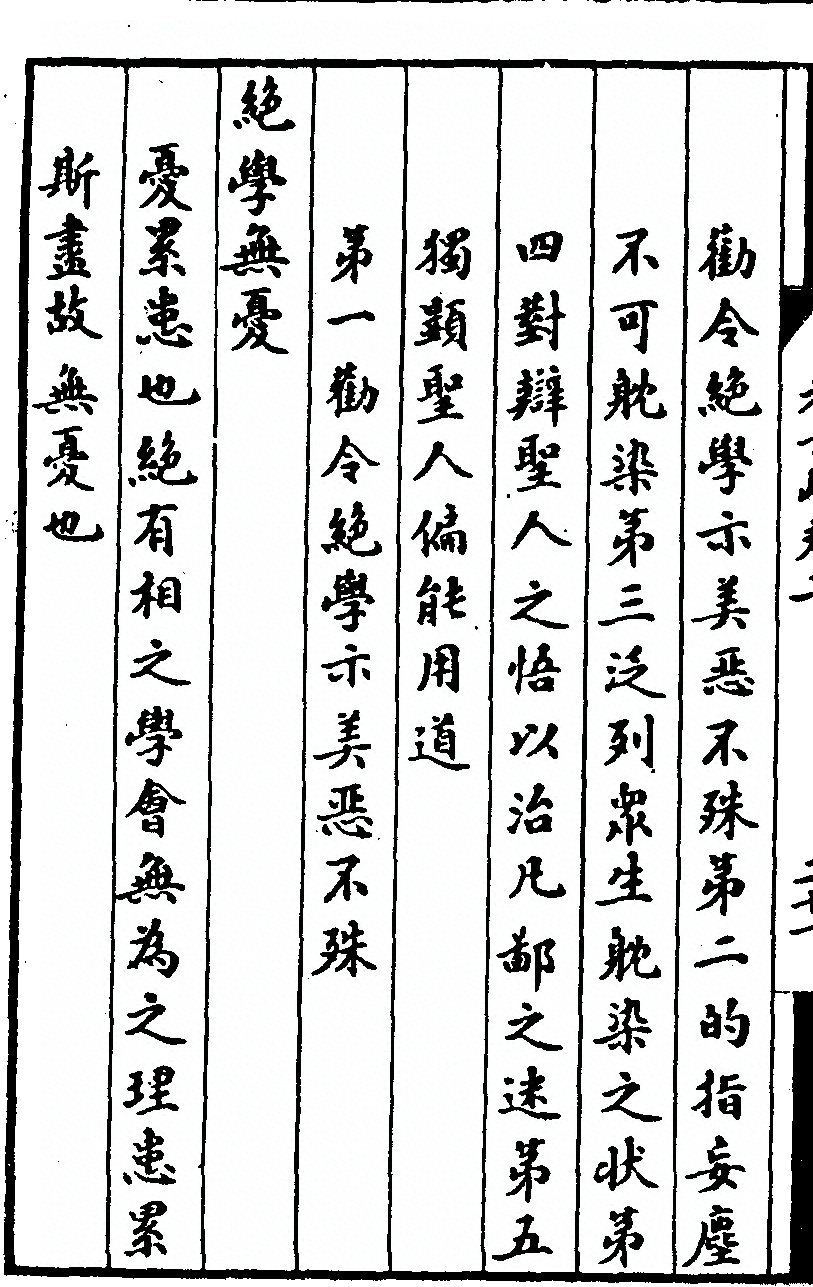 勸令絕學示美惡不殊第二的指妄塵
不可躭染第三泛列衆生躭染之狀第
四對辯聖人之悟以治凡鄙之迷第五
獨顯聖人偏能用道
第一勸令絕學示美惡不殊
絕學無憂
憂累患也絕有相之學會無為之理患累
斯盡故無憂也